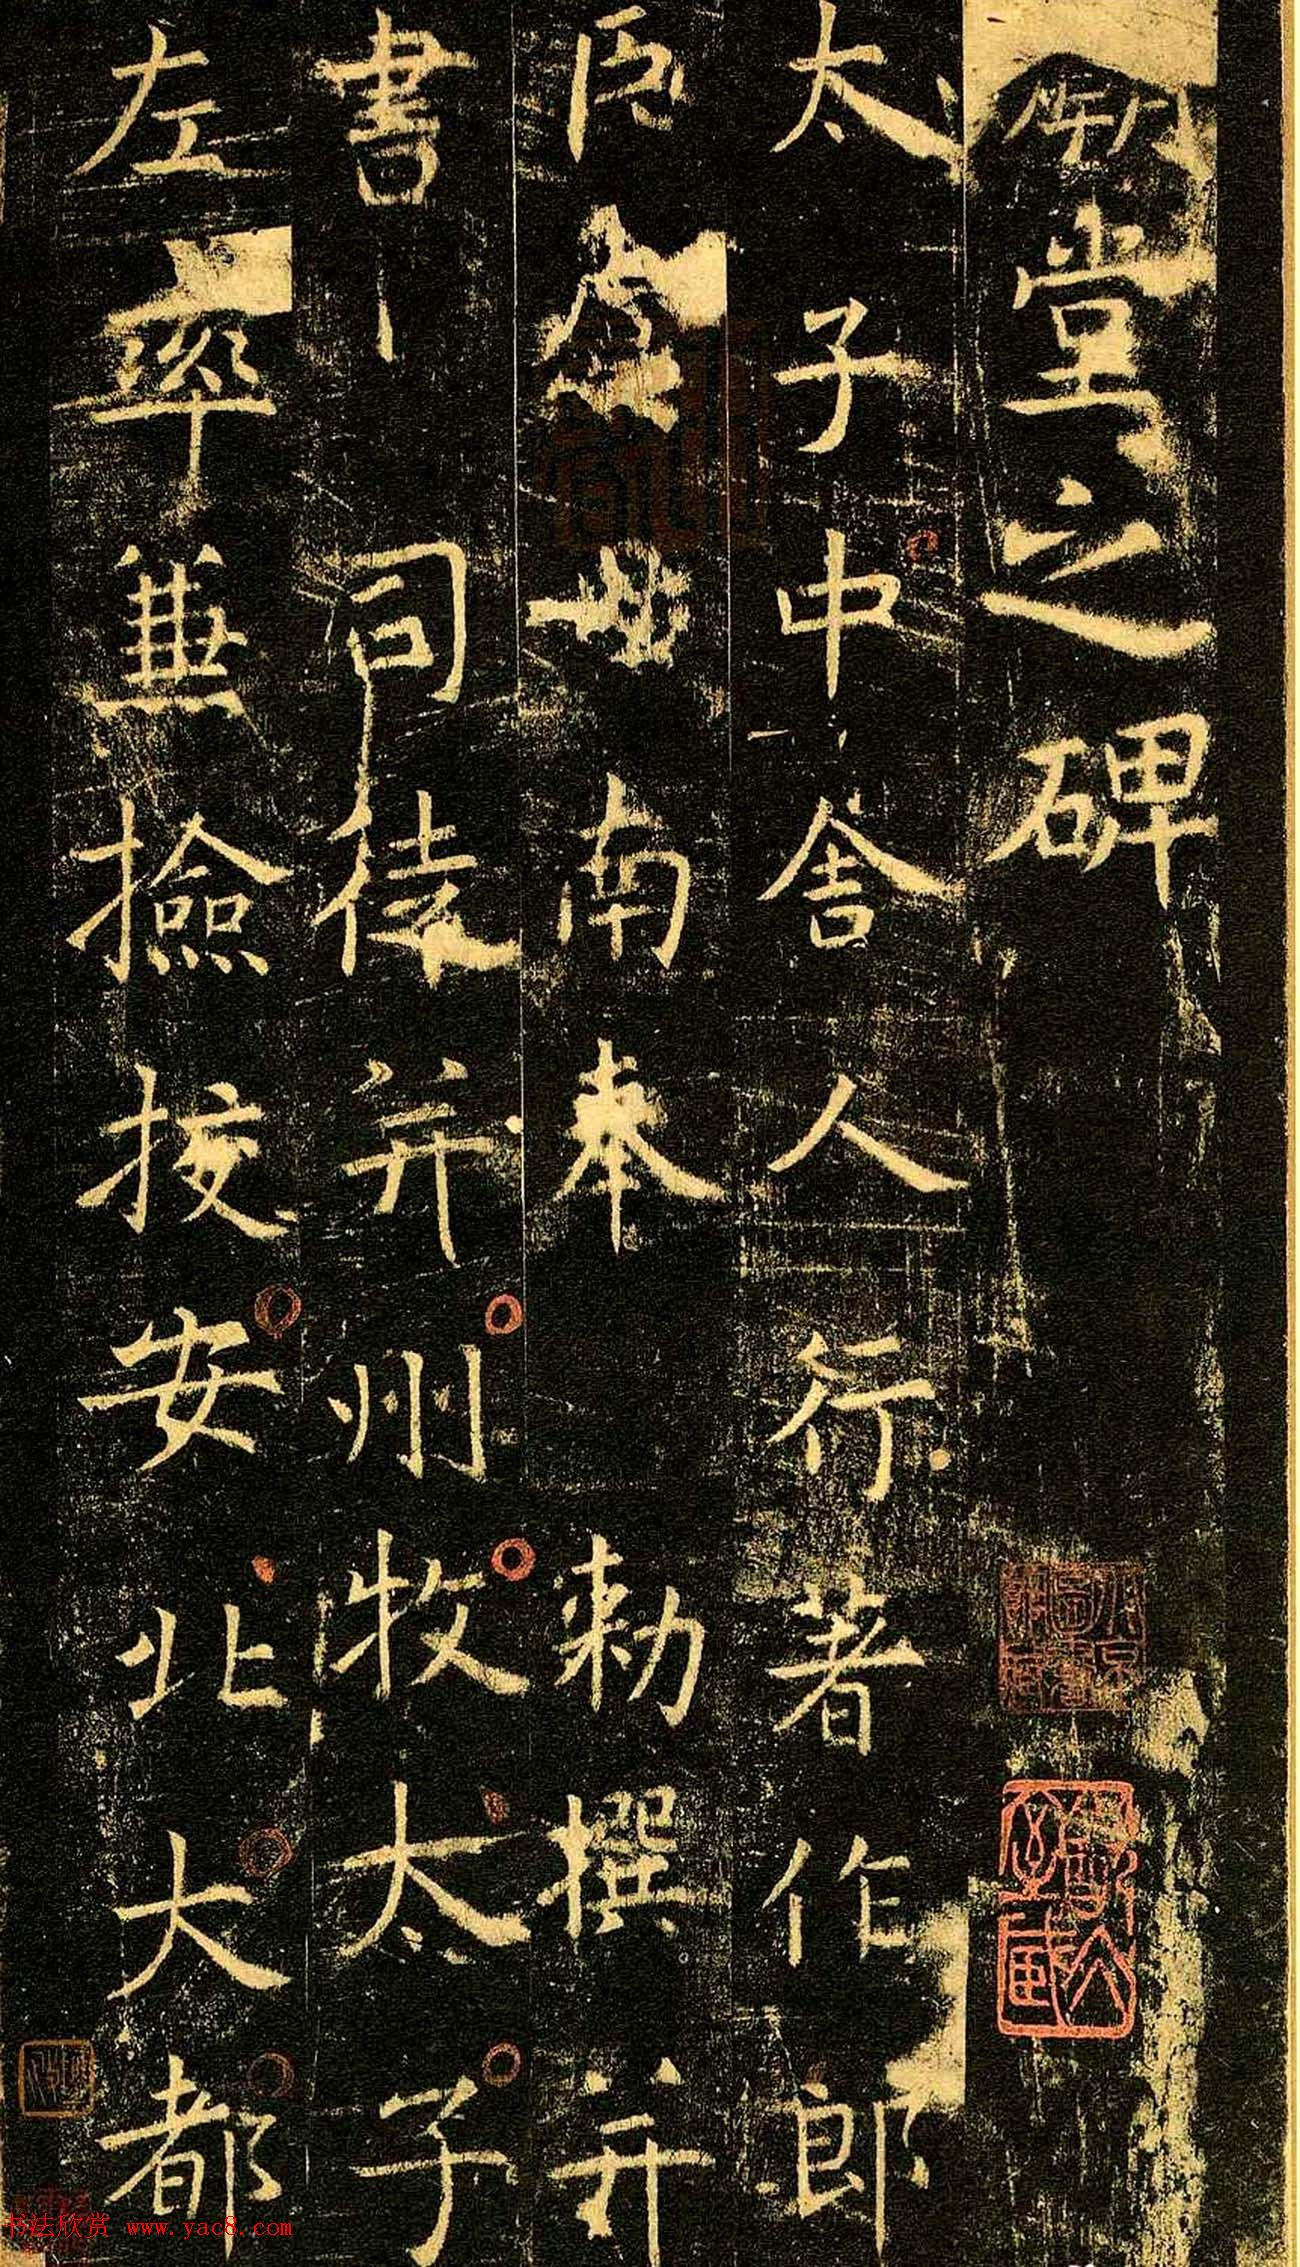 廟堂之碑
太子中舍人行著作郎
臣虞世南奉勑撰并
書司徒并州牧太子
左率兼撿挍安北大都
书法欣赏 www.yac8.com